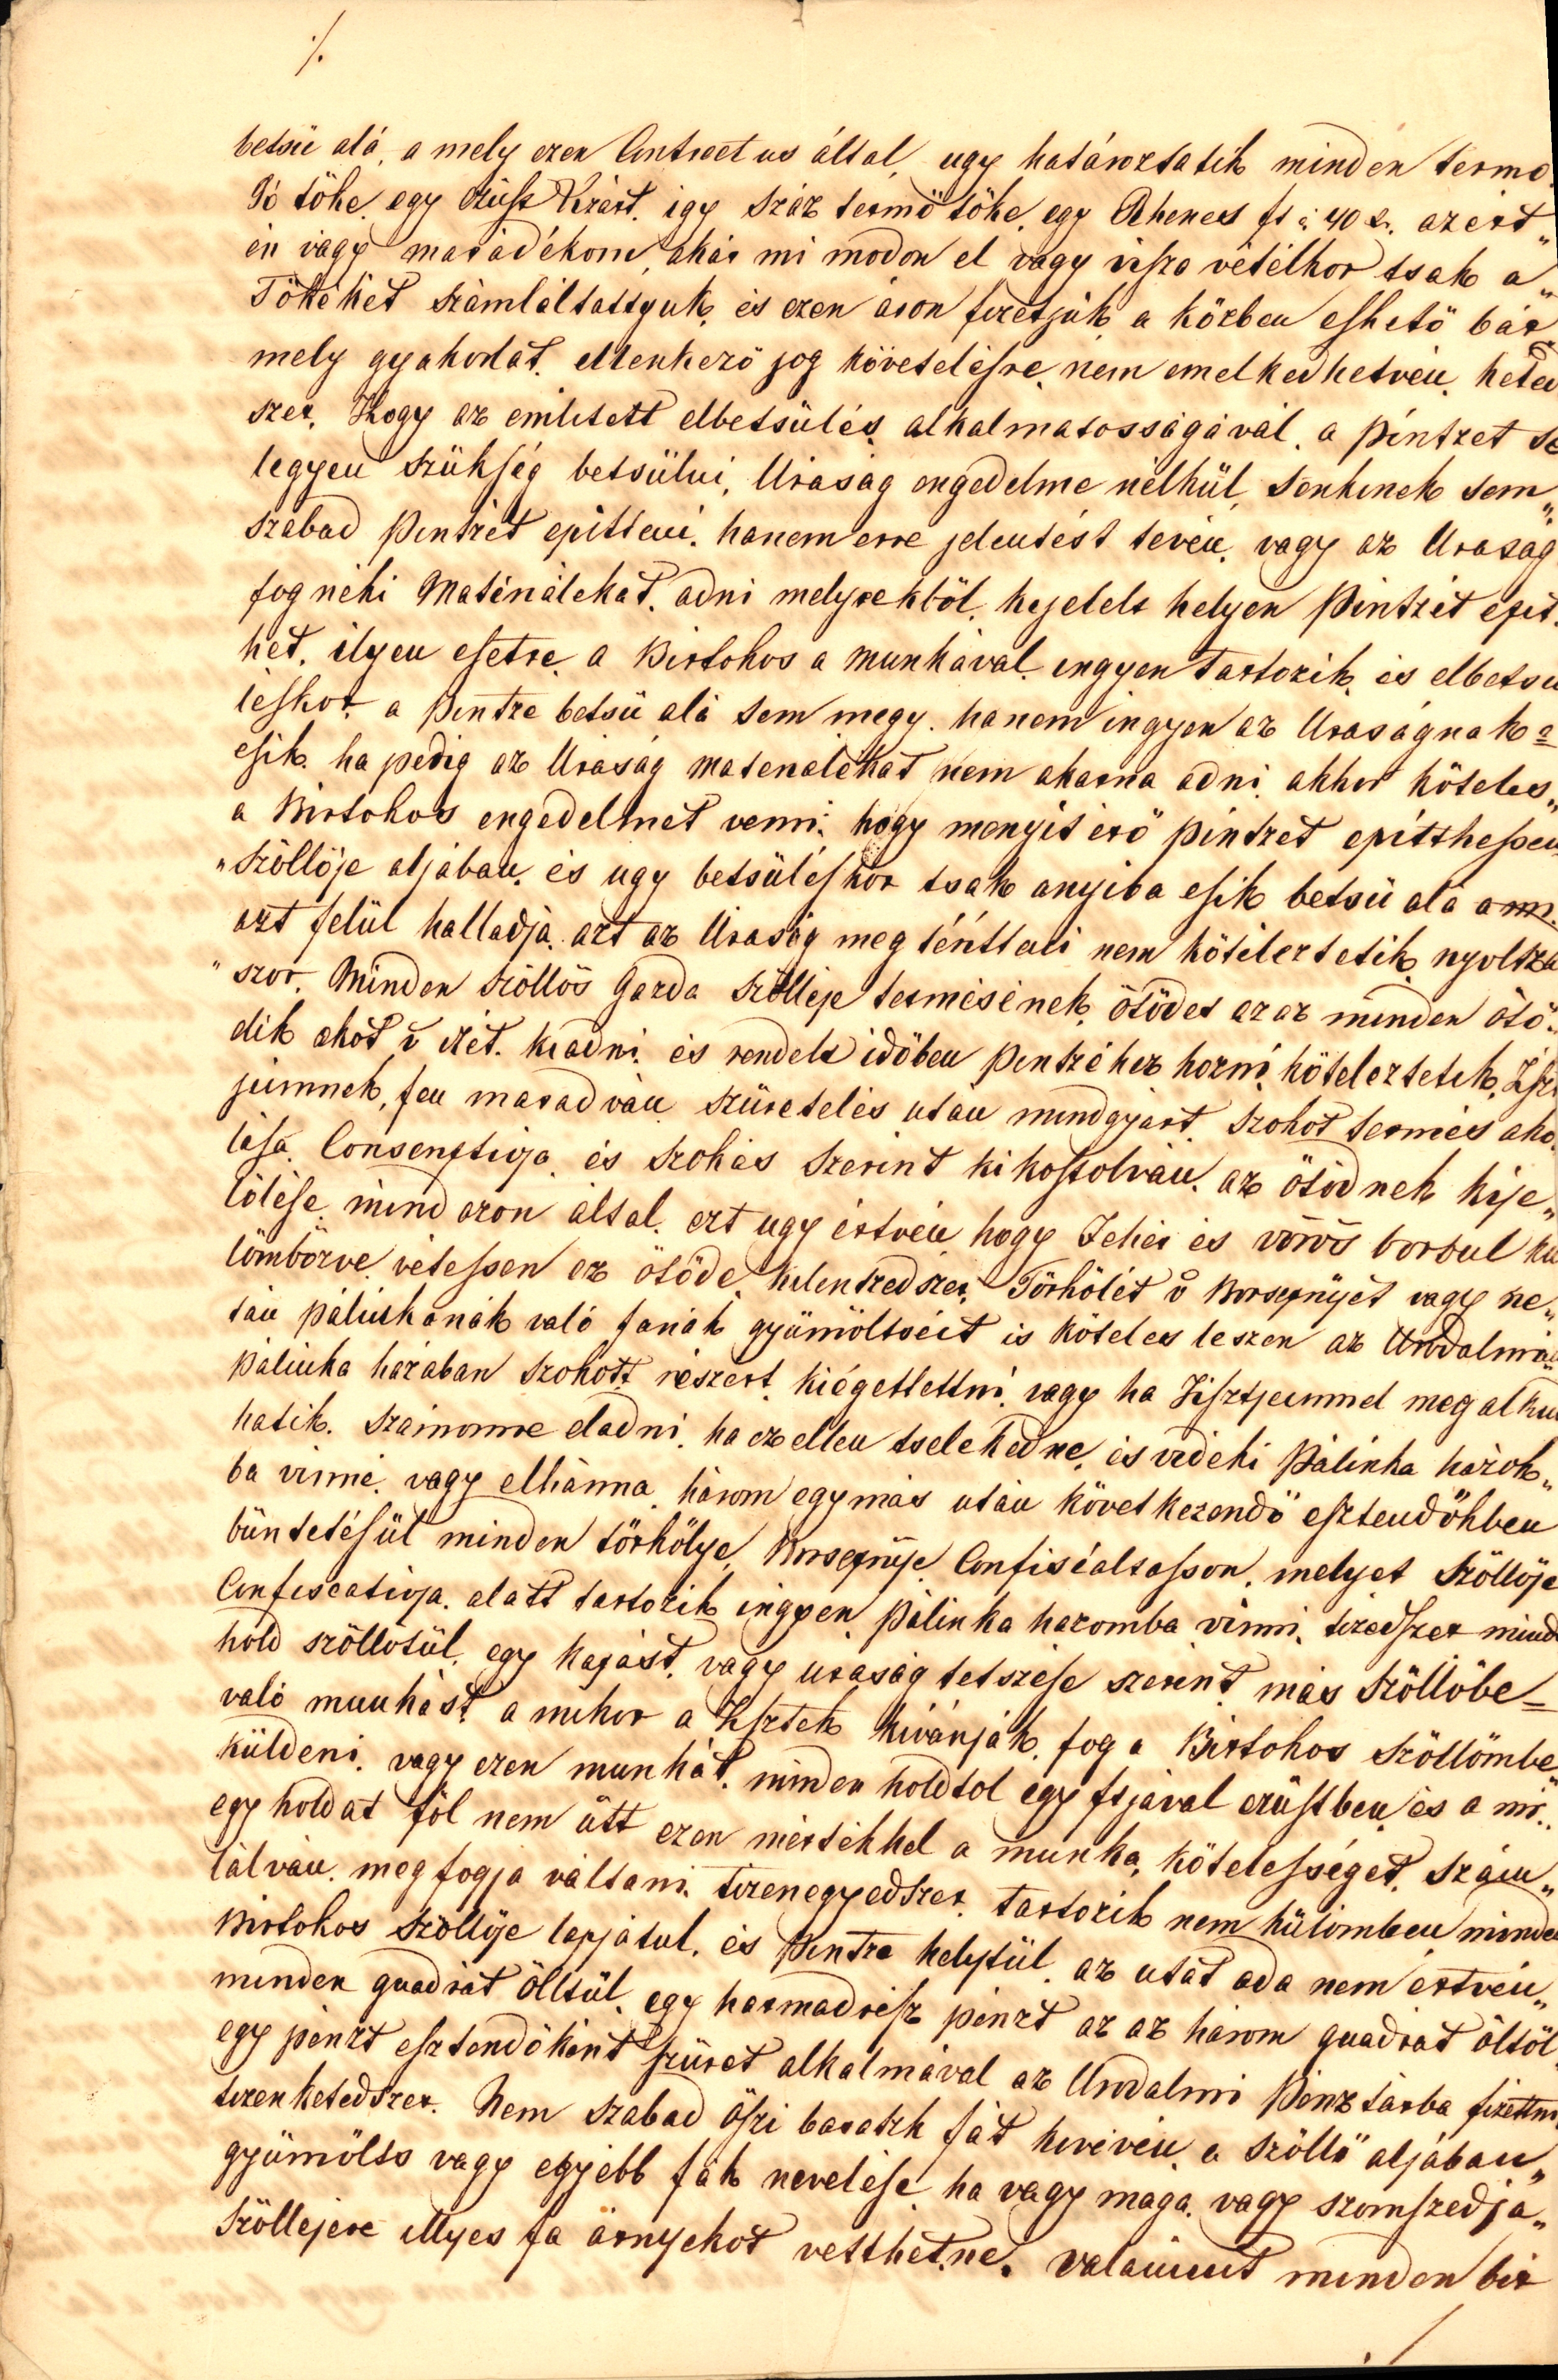 ./.
betsü alá, a mely ezen Contractus által, ugy határoztatik minden termo
Jó tőke, egy ezüst Krárt, igy száz termő tőke, egy Rhenes ft a 40 x. azért„
én vagy maradékom, akár mi modon el vagy viszsa vételkor tsak a„
Tökéket számláltattyuk, és ezen áron fizetjük, a közben eshető bár
mely gyakorlat, ellenkező jog követelésre nem emelkedhetvén, heted
szer. Hogy az emlitett elbetsülés alkalmatosságával, a pintzét se
legyen szükség betsülni, Uraság engedelme nélkül, senkinek sem„
szabad pintzét epitteni, hanem erre jelentést tévén, vagy az Uraság
fog néki Materiálékat, adni melyekböl, kijelelt helyen pintzét epit.
het, ilyen esetre a Birtokos a munkával ingyen tartozik, és elbetsü
léskor a pintze betsü alá sem megy, hanem ingyen az Uraságnak =
esik, ha pedig az Uraság materiálékat nem akarna adni, akkor köteles„
a Birtokos engedelmet venni, hogy menyit érö pintzét epitthessen
„szöllöje aljában, és ugy betsüléskor tsak anyiba esik betsü alá a mi
azt felül halladja, azt az Uraság meg téritteni nem köteleztetik, nyoltza
„szor. Minden szöllös Gazda szölleje termésének, ötödét azaz minden ötö„
dik akót v itzét, kiadni, és rendelt időben pintzéhez hozni köteleztetik, Tisz
jeimnek, fen maradván szüretelés után mindgyárt szokot termés ako
lása Conscriptioja és szokás szerint kikostolván, az ötödnek kije„
lölése, mind azon által, ezt ugy értvén hogy Fehér és vörös borbul kü
lömbözve vétessen ez ötöde, kilentzedszer. Törkölét v Borseprüjét vagy ne„
tán pálinkának való fanak gyümöltseit is köteles leszen az Urodalmi
pálinka házában szokott részért kiégettettni, vagy ha Tisztjeimmel meg alku
hatik, számomra eladni, ha ez ellen tselekedne, és vidéki pálinka házok„
ba vinné, vagy elhánna, három egymás után következendő esztendőkben
büntetésül minden törkölye, Borseprüje Confiscaltasson, melyet Szöllöje
Confiscatioja alatt tartozik ingyen pálinka hazomba vinni, tizedszer mind
hold szöllötül, egy kapást, vagy uraság tetszése szerint más szöllöbe =
való munkást a mikor a Tisztek kivánják, fog a Birtokos szöllömbe
küldeni, vagy ezen munkát, minden holdtol egy ftjával ezüstben, és a mi„
egy holdat föl nem ütt ezen mértékkel a munka, kötelességet, szám„
lálván, meg fogja váltani, tizenegyedszer, tartozik nem külömben minden
Birtokos szöllöje lapjátul, és pintze helytül, az utat oda nem értvén„
minden quadrát ölltül, egy harmadrész pénzt az az három quadrat öltöl
egy pénzt esztendőként szüret alkalmával az Urodalmi pénztárba fizettni
tizenkettedszer. Nem szabad őszi baratzk fát kivévén, a szöllő aljában„
gyümölts vagy egyébb fák nevelése ha vagy maga, vagy szomszédja„
Szöllejére illyes fa árnyékot vetthetne, valamint minden bir
./